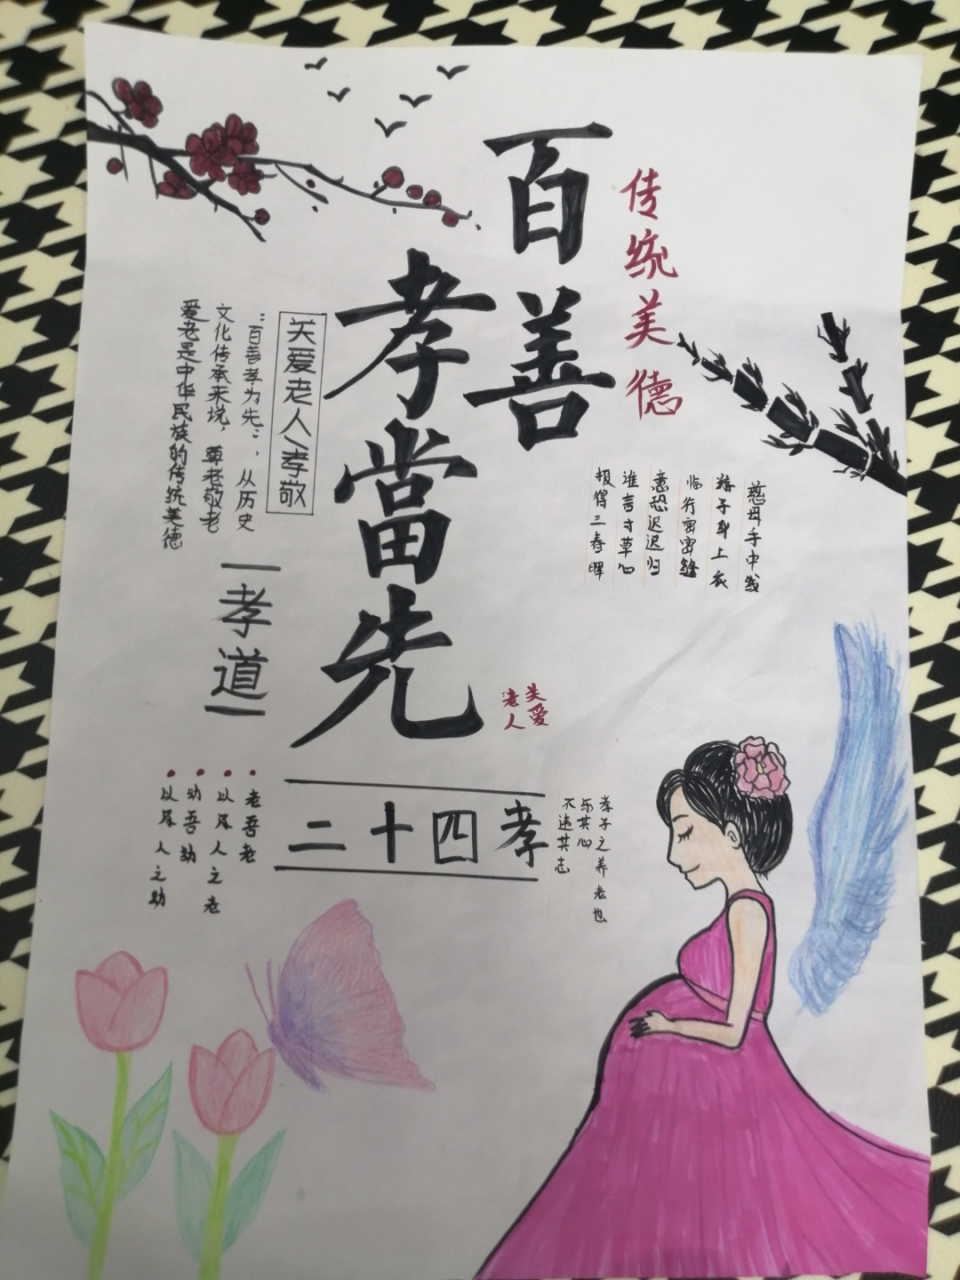 传统美德
百善
孝當先
慈母手中线
游子身上衣
临行密密缝
意恐迟迟归
谁言寸草心
报得三春晖
关爱老人、孝敬
“百善孝为先”，从历史
文化传承来说，尊老敬老
爱老是中华民族的传统美德
孝道
关爱
老人
二十四孝
孝子之养老也
乐其心
不违其志
老吾老
以及人之老
幼吾幼
以及人之幼